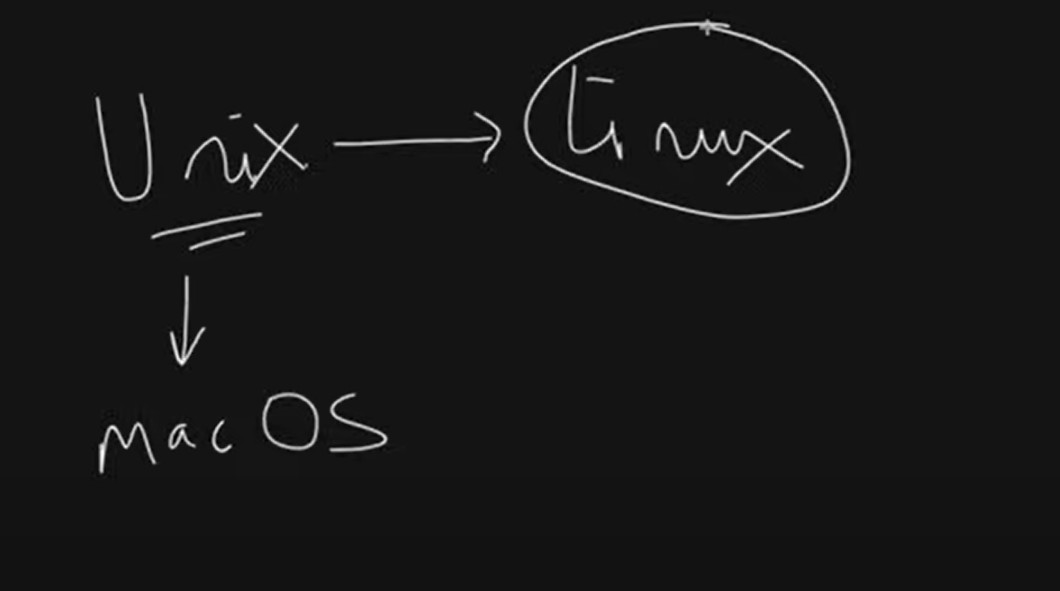 Unix → Linux
↓
macOS